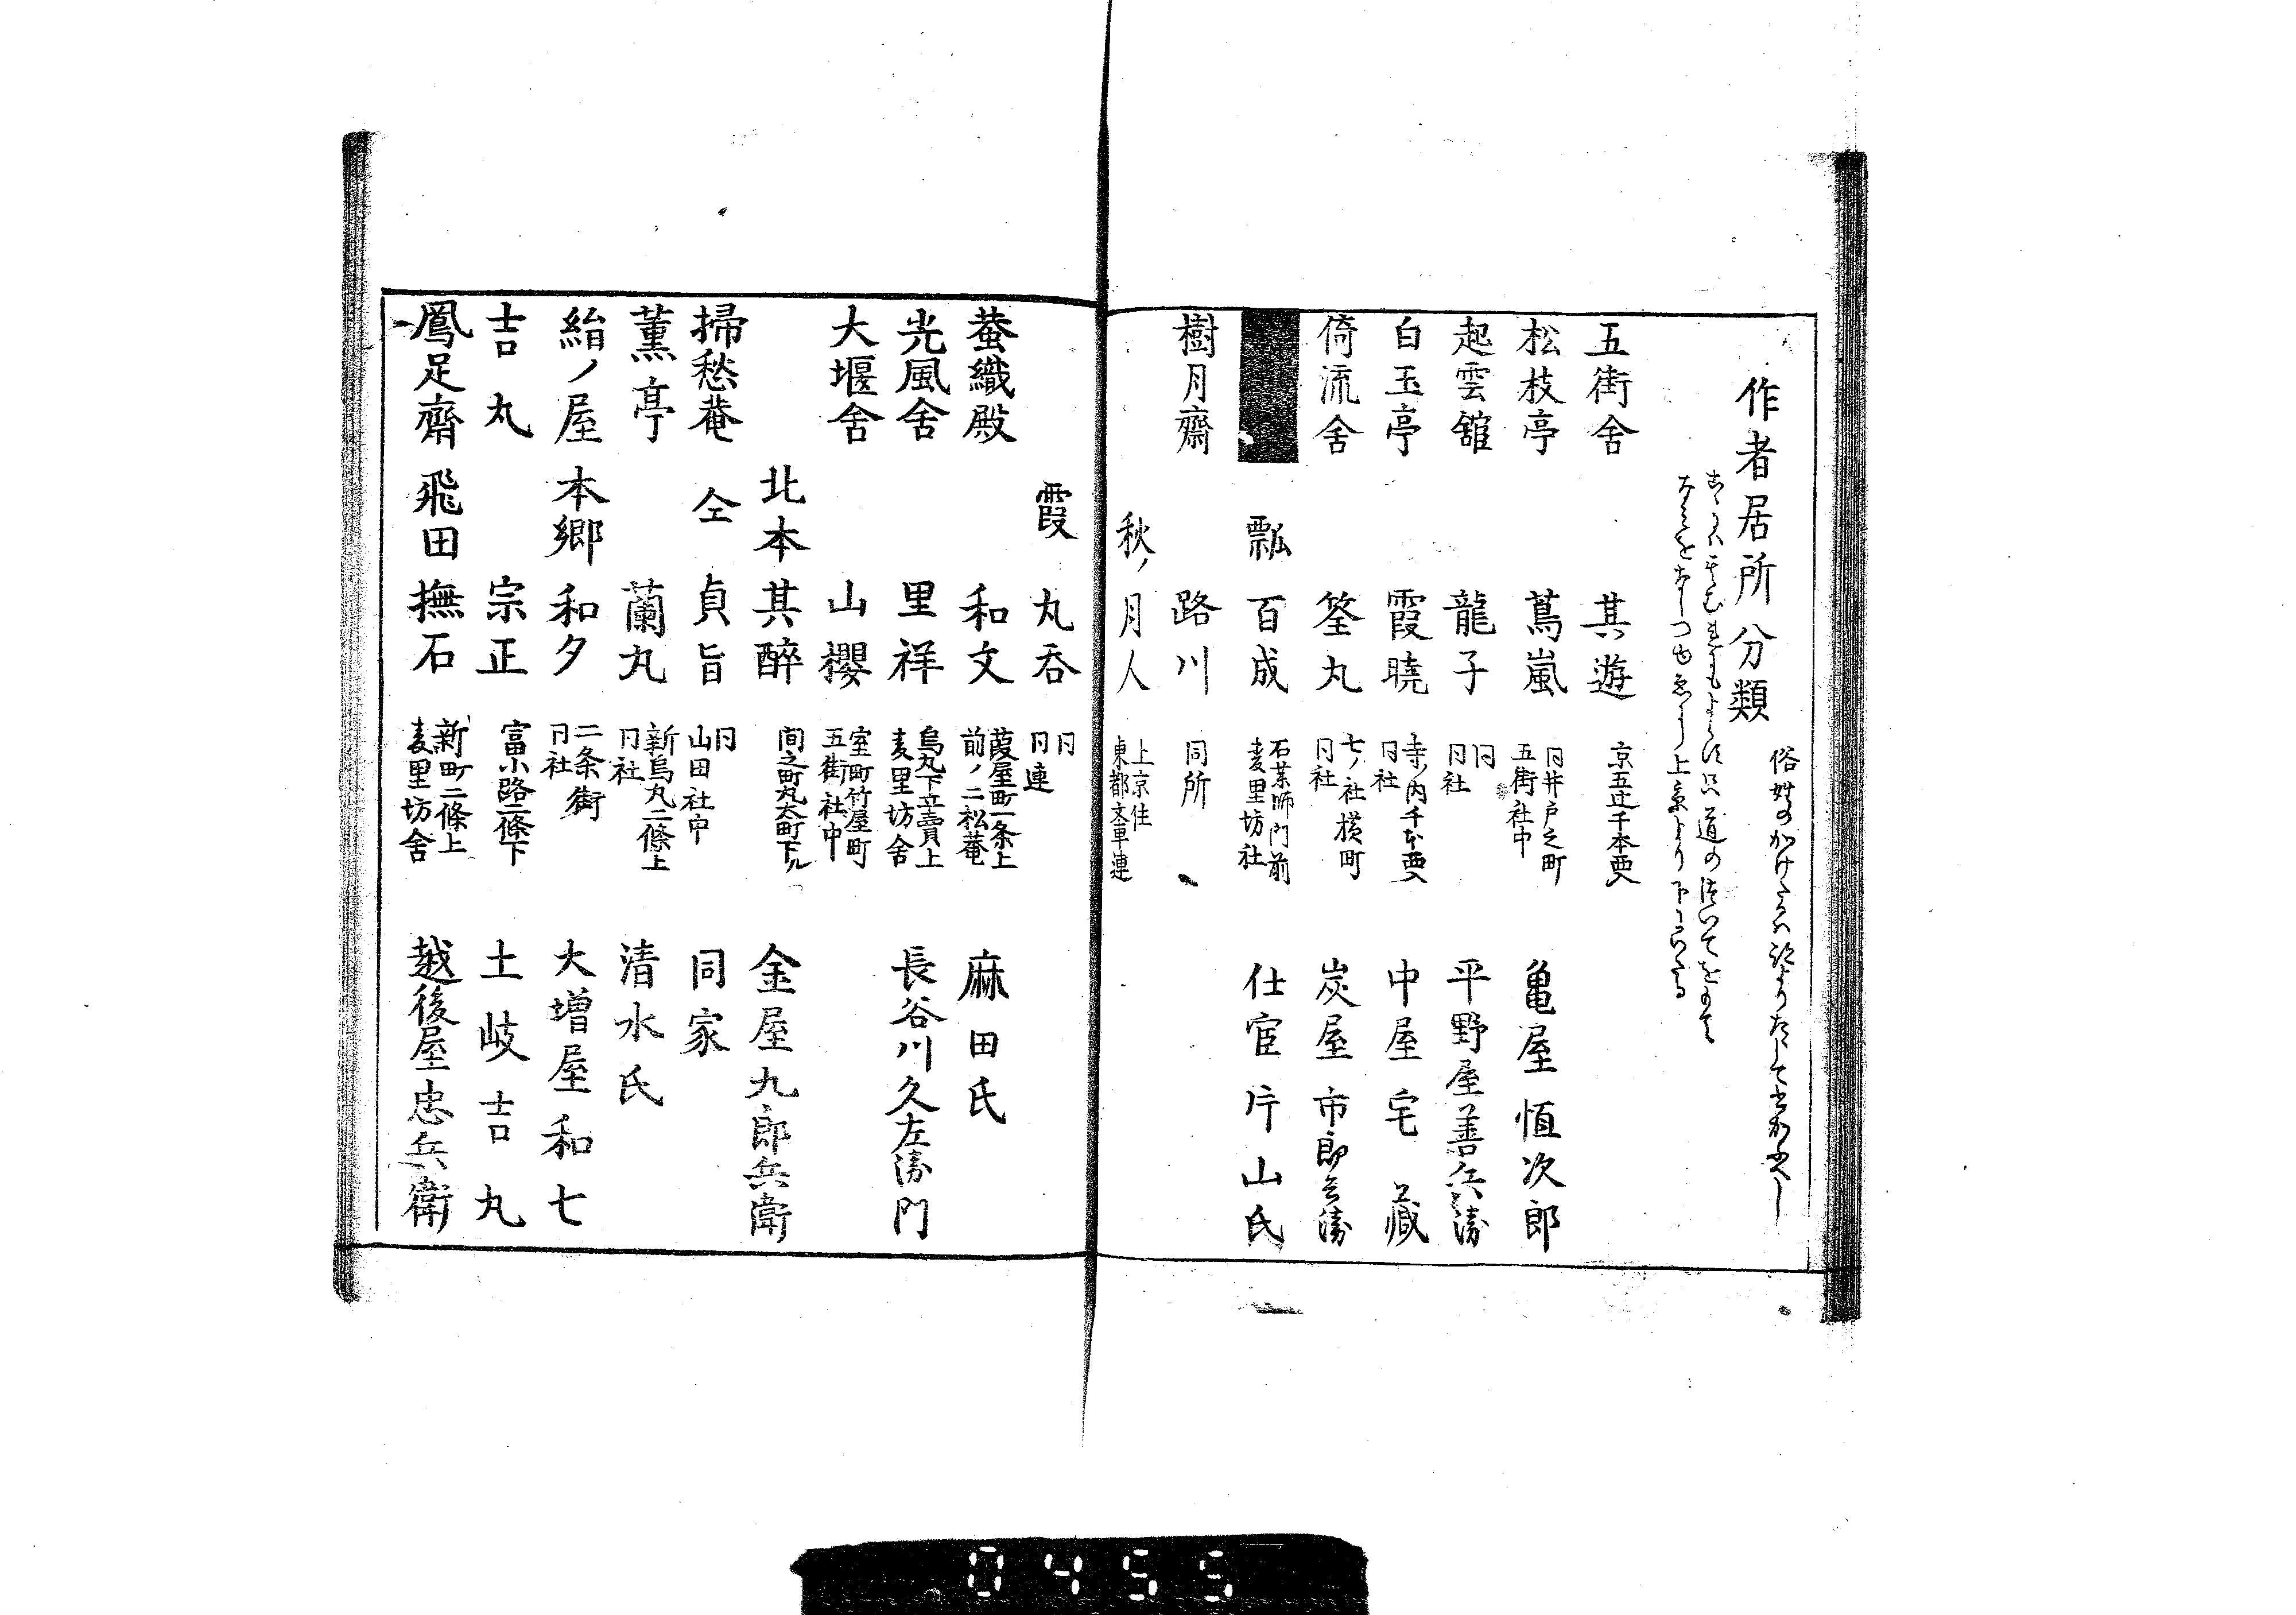 作者居所分類
俗姓のかけたるは
五街舍 其遊 京五辻千本西へ入
松枝亭 蔦嵐 同井戸之町 五街社中 亀屋恒次郎
起雲舘 龍子 同 同社 平野屋善兵衛
白玉亭 霞暁 寺ノ内千本西へ入 同社 中屋宅藏
倚流舍 筌丸 七ノ社横町 同社 炭屋市郎兵衛
瓢百成 石薬師門前 麦里坊社 仕官片山氏
樹月齋 路川 同所
秋ノ月人 上京住 東都文車連
霞丸呑 同 同連
蚕織殿 和文 葭屋町一条上 前ノ二松菴 麻田氏
光風舍 里祥 烏丸下立賣上 麦里坊舍 長谷川久左衛門
大堰舍 山櫻 室町竹屋町 五街社中
北本其醉 間之町丸太町下ル 金屋九郎兵衛
掃愁菴 仝 貞旨 同 山田社中 同家
薫亭 蘭丸 新烏丸二條上 同社 清水氏
絹ノ屋 本郷和夕 二条街 同社 大増屋和七
吉丸 宗正 富小路二條下 土岐吉丸
鳳足齋 飛田撫石 新町二條上 麦里坊舍 越後屋忠兵衛
0455